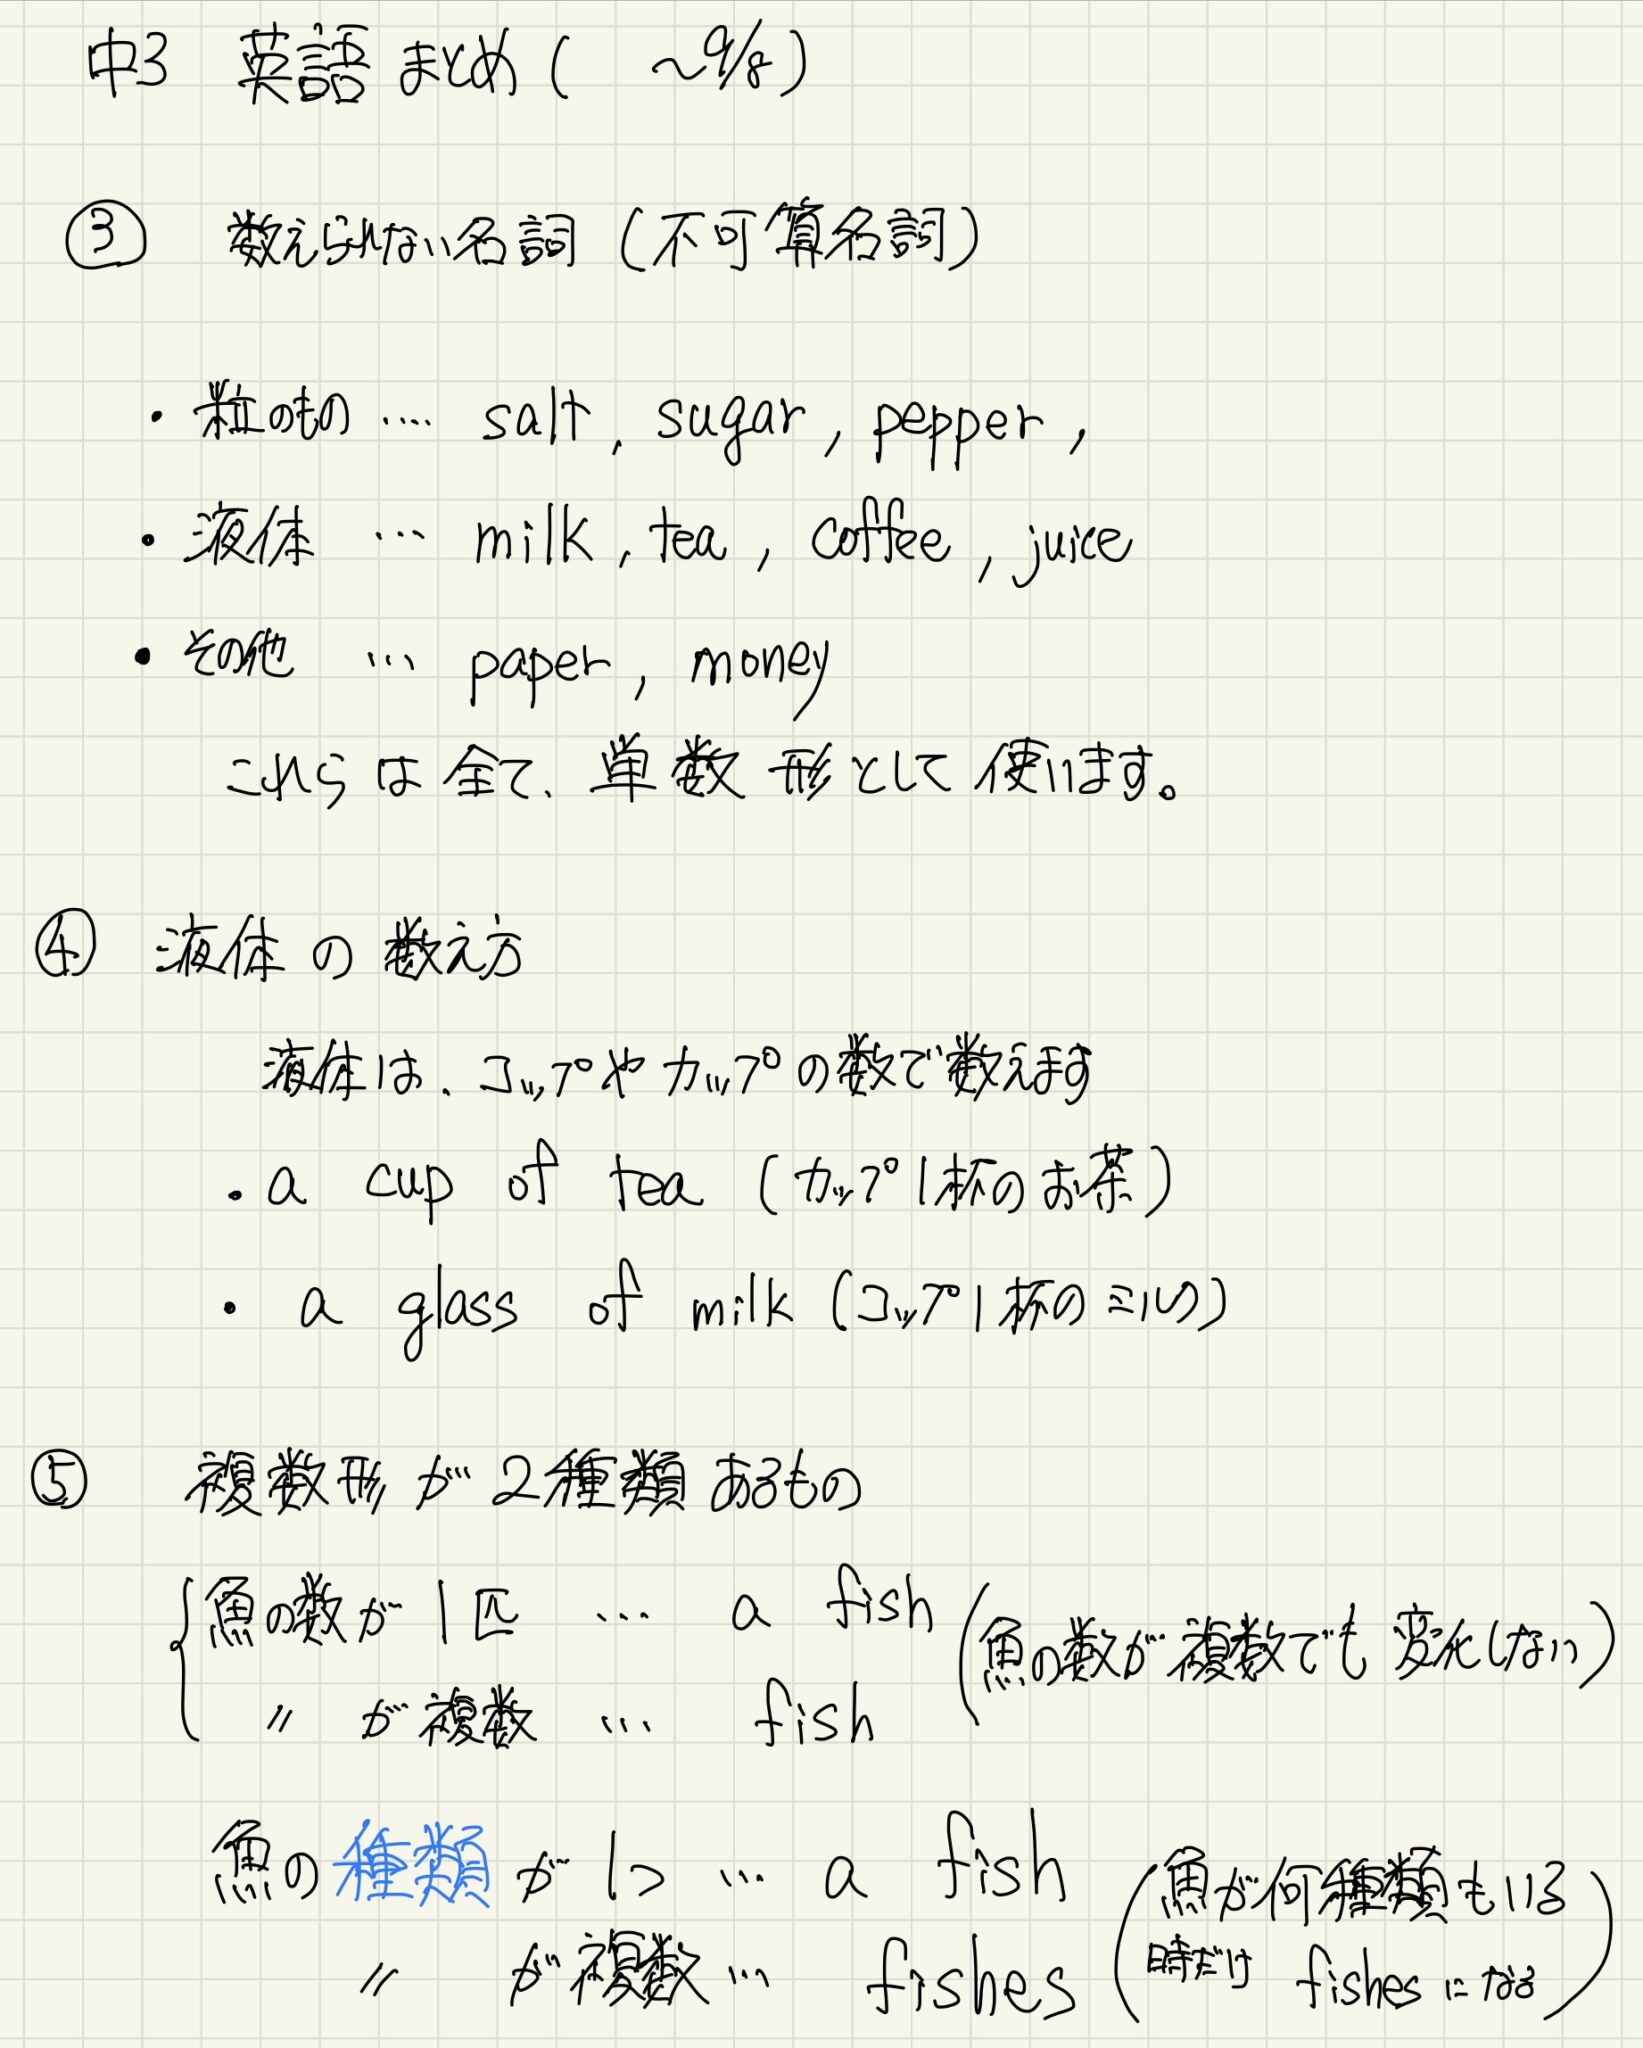 中3 英語 まとめ( ～9/8)
③ 数えられない名詞 (不可算名詞)
・粒のもの …. salt, sugar, pepper,
・液体 … milk, tea, coffee, juice
・その他 … paper, money
これらは全て、単数形として使います。
④ 液体の数え方
液体は、コップやカップの数で数えます
・a cup of tea (カップ1杯のお茶)
・a glass of milk (コップ1杯のミルク)
⑤ 複数形が2種類あるもの
魚の数が1匹 … a fish
〃 が複数 … fish
(魚の数が複数でも変化しない)
魚の種類が1つ … a fish
〃 が複数 … fishes
(魚が何種類もいる
時だけ fishesになる)